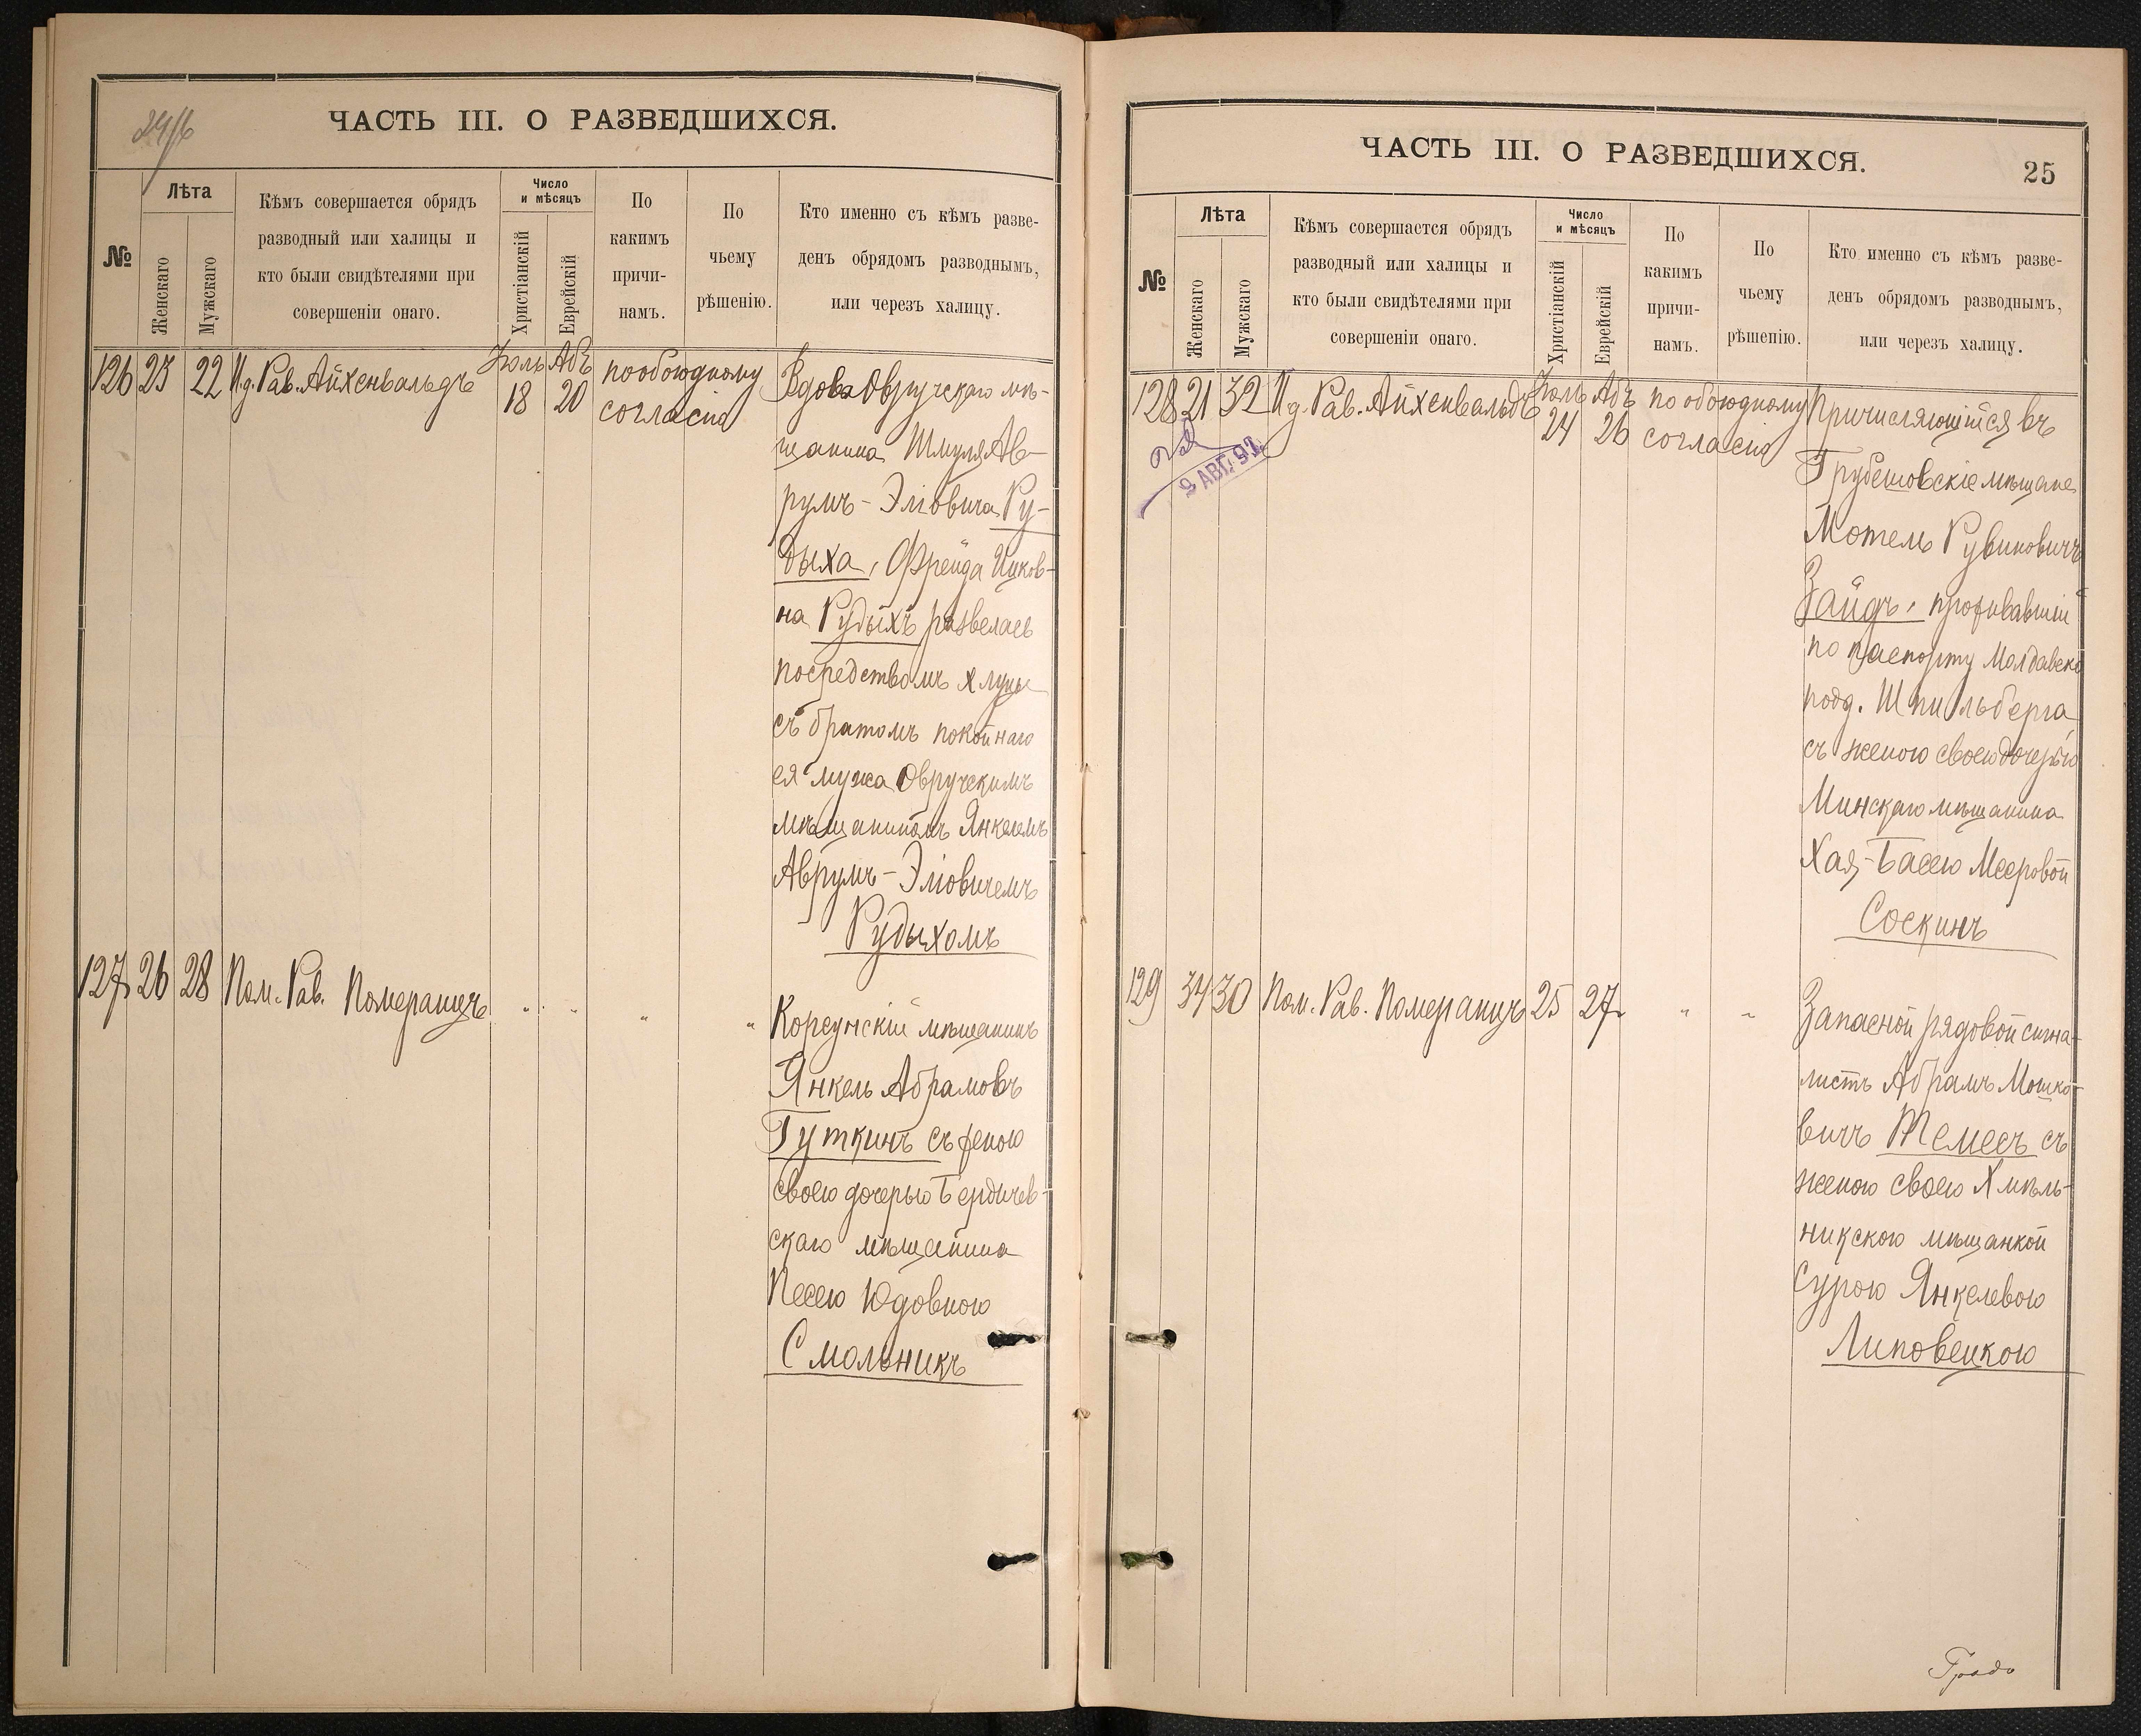 24/6
ЧАСТЬ III. О РАЗВЕДШИХСЯ.
№
Лѣта
Женскаго
Мужскаго
Кѣмъ совершается обрядъ
разводный или халицы и
кто были свидѣтелями при
совершеніи онаго.
Число
и мѣсяцъ
Христіанскій
Еврейскій
По
какимъ
причи-
намъ.
По
чьему
рѣшенію.
Кто именно съ кѣмъ разве-
денъ обрядомъ разводнымъ,
или черезъ халицу.
126 23 22 И.д. Рав. Айхенвальдъ Іюль 18 Абъ 20 по обоюдному
согласію
Вдова Овручскаго мѣ-
щанина Шмуля Ав-
румъ-Эліовича Ру-
дыха, Фрейда Ицков-
на Рудыхъ развелась
посредствомъ хлуцы
съ братомъ покойнаго
ея мужа Овручскимъ
мѣщаниномъ Янкелемъ
Аврумъ-Эліовичемъ
Рудыхомъ
127 26 28 Пом. Рав. Померанцъ " " " "
Корсунскій мѣщанинъ
Янкель Абрамовъ
Гуткинъ съ женою
своею дочерью Бердичев-
скаго мѣщанина
Песею Юдовною
Смольникъ
ЧАСТЬ III. О РАЗВЕДШИХСЯ.
25
№
Лѣта
Женскаго
Мужскаго
Кѣмъ совершается обрядъ
разводный или халицы и
кто были свидѣтелями при
совершеніи онаго.
Число
и мѣсяцъ
Христіанскій
Еврейскій
По
какимъ
причи-
намъ.
По
чьему
рѣшенію.
Кто именно съ кѣмъ разве-
денъ обрядомъ разводнымъ,
или черезъ халицу.
128 21 32 И.д. Рав. Айхенвальдъ Іюль 24 Абъ 26 по обоюдному
согласію
9 АВГ. 92
Причисляющійся въ
Грубешовскіе мѣщане
Мотель Рувиновичъ
Зайдъ, проживавшій
по паспорту Молдавск.
подд. Шпильберга
съ женою своею дочерью
Минскаго мѣщанина
Хая-Басею Мееровой
Соскинъ
129 34 30 Пом. Рав. Померанцъ 25 27 " "
Запасной рядовой сигна-
листъ Абрамъ Мошко-
вичъ Темесъ съ
женою своею Хмѣль-
никскою мѣщанкой
Сурою Янкелевою
Липовецкою